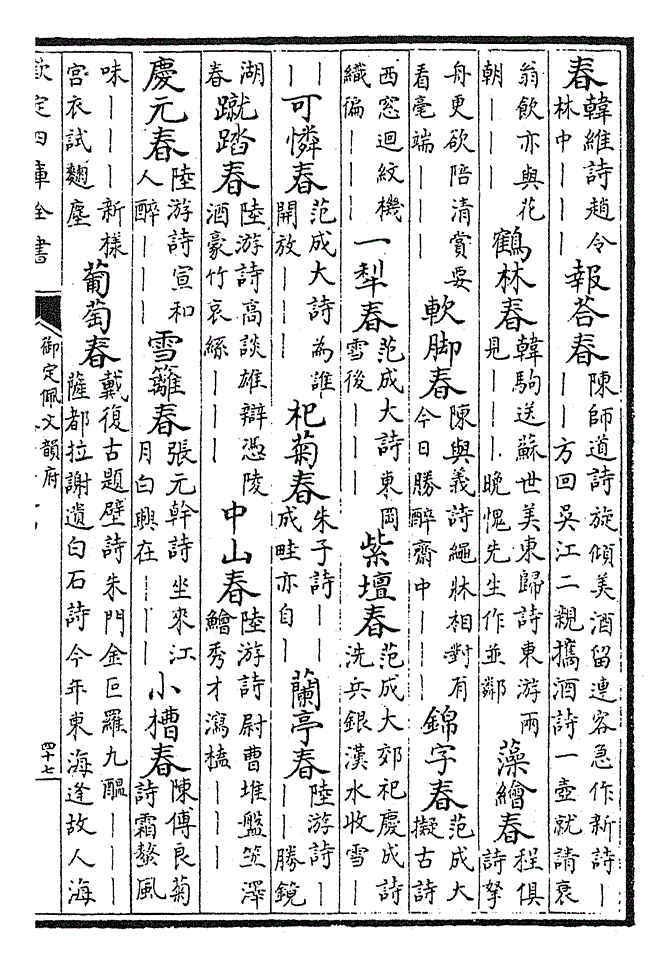 春韓維詩趙令林中｜｜｜報荅春陳師道詩旋傾美酒留連客急作新詩｜｜｜方回吳江二親攜酒詩一壺就請哀
翁飲亦與花朝｜｜｜鶴林春韓駒送蘇世美東歸詩東游兩見｜｜｜晚愧先生作並鄰藻繪春程俱詩拏
舟更欲陪清賞要看毫端｜｜｜軟脚春陳與義詩繩牀相對有今日勝醉齋中｜｜｜錦字春范成大擬古詩
西窓迴紋機織徧｜｜｜一犁春范成大詩東岡雪後｜｜｜紫壇春范成大郊祀慶成詩洗兵銀漢水收雪｜
｜｜可憐春范成大詩為誰開放｜｜｜杞菊春朱子詩｜｜成畦亦自｜蘭亭春陸游詩｜｜｜勝鏡
湖春蹴踏春陸游詩高談雄辯憑陵酒豪竹哀絲｜｜｜中山春陸游詩尉曹堆盤笠澤鱠秀才瀉榼｜｜｜
慶元春陸游詩宣和人醉｜｜｜雪籬春張元幹詩坐來江月白興在｜｜｜小槽春陳傅良菊詩霜螯風
味｜｜｜新樣宫衣試麴塵葡萄春戴復古題壁詩朱門金叵羅九醖｜｜｜薩都拉謝遺白石詩今年東海逢故人海
欽定四庫全書
御定佩文韻府
四十七